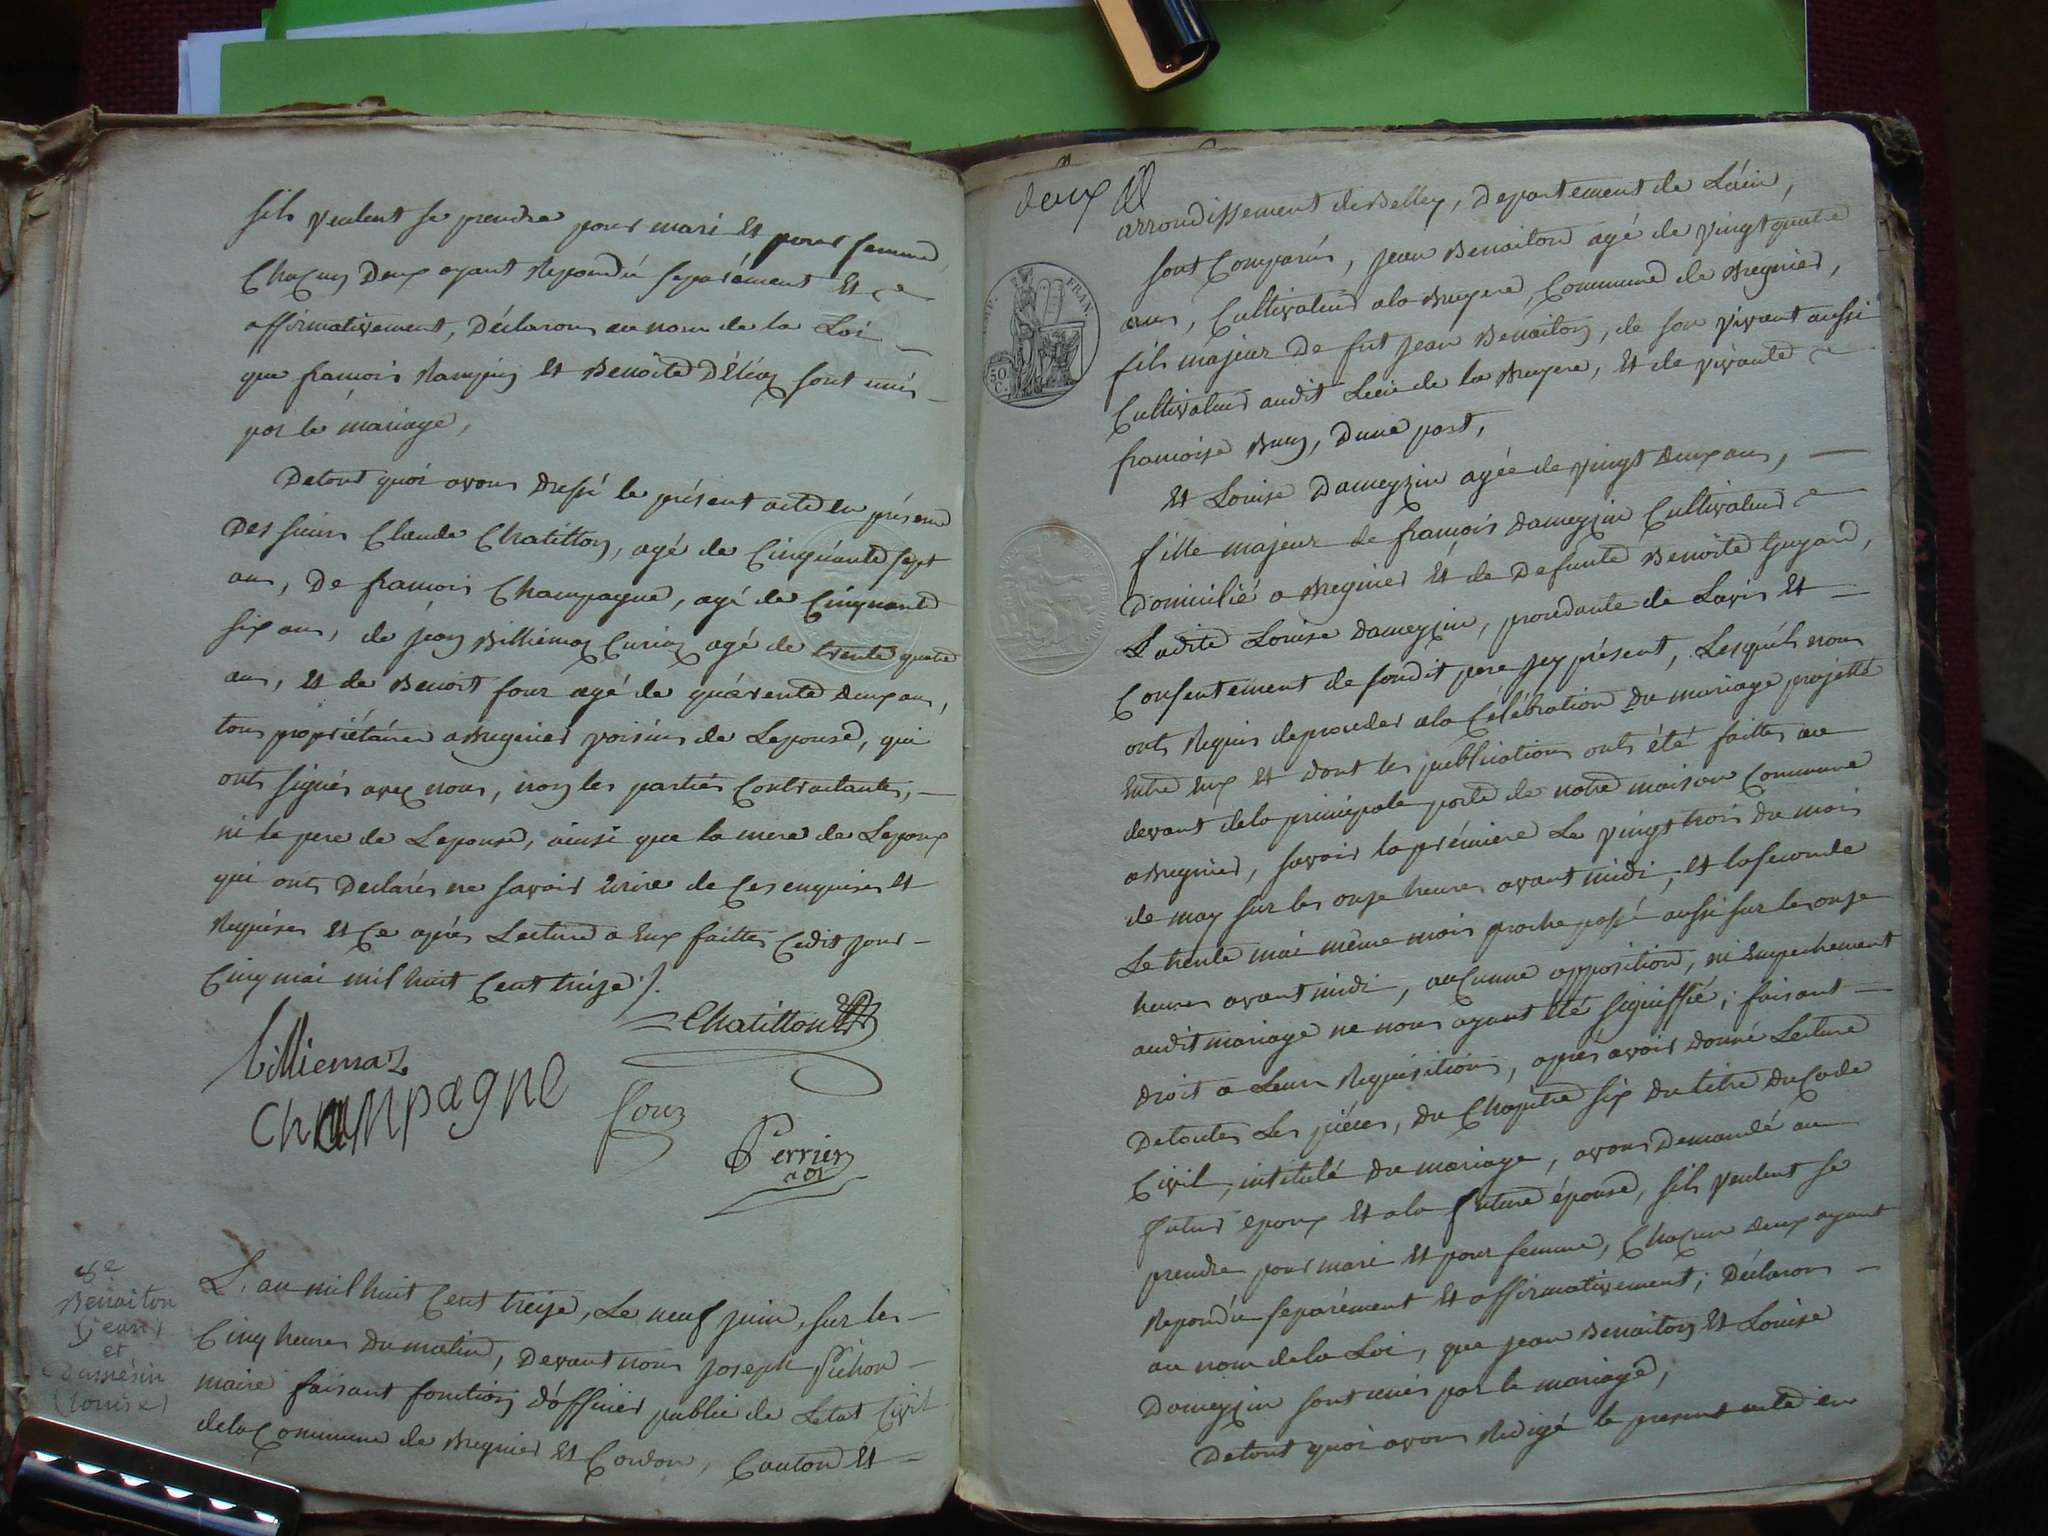 sils veulent se prendre pour mari et pour femme
Chacun Deux ayant Repondu separément et
affirmativement, Déclarons au nom de la Loi
que francois et Benoite sont unis
par le mariage,
De tout quoi avons Dressé le présent acte en présence
Des sieurs Claude Chatillon, agé de Cinquante sept
ans, De francois Champagne, agé de Cinquante
six ans, de jean Billiemaz Curiaz agé de trente quatre
ans, et de Benoit four agé de quarente deux ans,
tous propriétaires a Bregnier voisins de Lepouse, qui
ont signés avec nous, non les parties Contractantes,
ni le pere de Lepouse, ainsi que la mere de Lepoux
qui ont Declarés ne savoir Ecrire de ce enquises et
Requises et Ce après Lecture a Eux faittes Cedit jour
Cinq mai mil huit Cent treize ./.
billiemaz
Chatillon
CHAMPAGNE
four
Perrier
adt
8e
Benaiton
(jean)
et
Damésin
(Louise)
L'an mil huit Cent treize, Le neuf juin, sur les
Cinq heures Du matin, Devant nous Joseph Pichon
maire faisant fonction D'officier public de Letat Civil
dela Commune de Bregnier et Cordon, Canton et
deux
arrondissement de Belley, Departement de Láin,
sont Comparus, jean Benaiton agé de vingt quatre
ans, Cultivateur a la Bruyere, Commune de Bregnier,
fils majeur De fut jean Benaiton, de son vivant aussi
Cultivateur audit Lieu de la Bruyere, et de vivante
francoise Buy, Dune part,
FRAN.
50
C.
et Louise Dameyzin agée de vingt deux ans,
fille majeur de francois Dameyzin Cultivateur
Domicilié a Bregnier et de Defunte Benoite Guyard,
Ladite Louise Dameyzin, procedante de Lavis et
Consentement de sondit pere jcy présent, Lesquels nous
ont Requis de proceder a la Célébration Du mariage projetté
Entre Eux et dont les publications ont été faittes au
devant dela principale porte de notre maison Commune
a Bregnier, savoir la prémiere Le vingt trois du mois
de may sur les onze heures avant midi, et la seconde
Le trente mai même mois proche passé aussi sur les onze
heures avant midi, auCunne opposition, ni Empechement
audit mariage ne nous ayant été signiffié; faisant
Droit a Leurs Requisitions, après avoir Donné Lecture
De toutes Les pièces, du Chapitre six Du titre Du Code
Civil, intitulé du mariage, avons Demandé au
futur epoux et a la future épouse, sils veulent se
prendre pour mari et pour femme, Chacun deux ayant
Repondu separément et affirmativement; Déclarons
au nom de la Loi, que jean Benaiton et Louise
Dameyzin sont unis par le mariage,
De tout quoi avons Redigé le present acte en